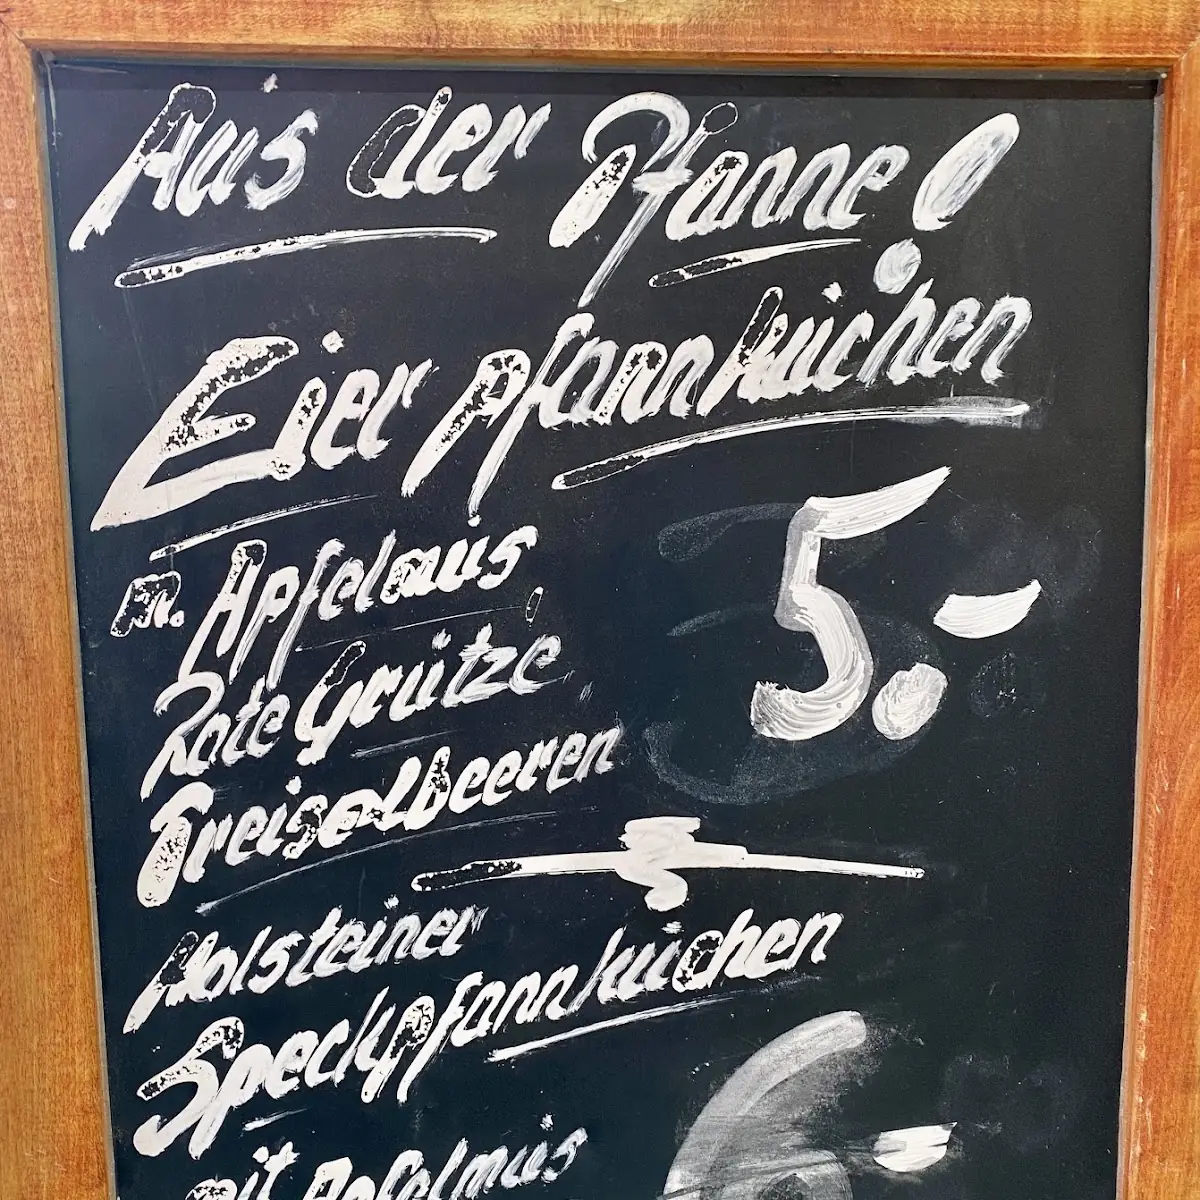 Aus der Pfanne!
Eierpfannkuchen
m. Apfelmus
Rote Grütze
Preiselbeeren
5.-
Holsteiner
Speckpfannkuchen
mit Apfelmus
6.-